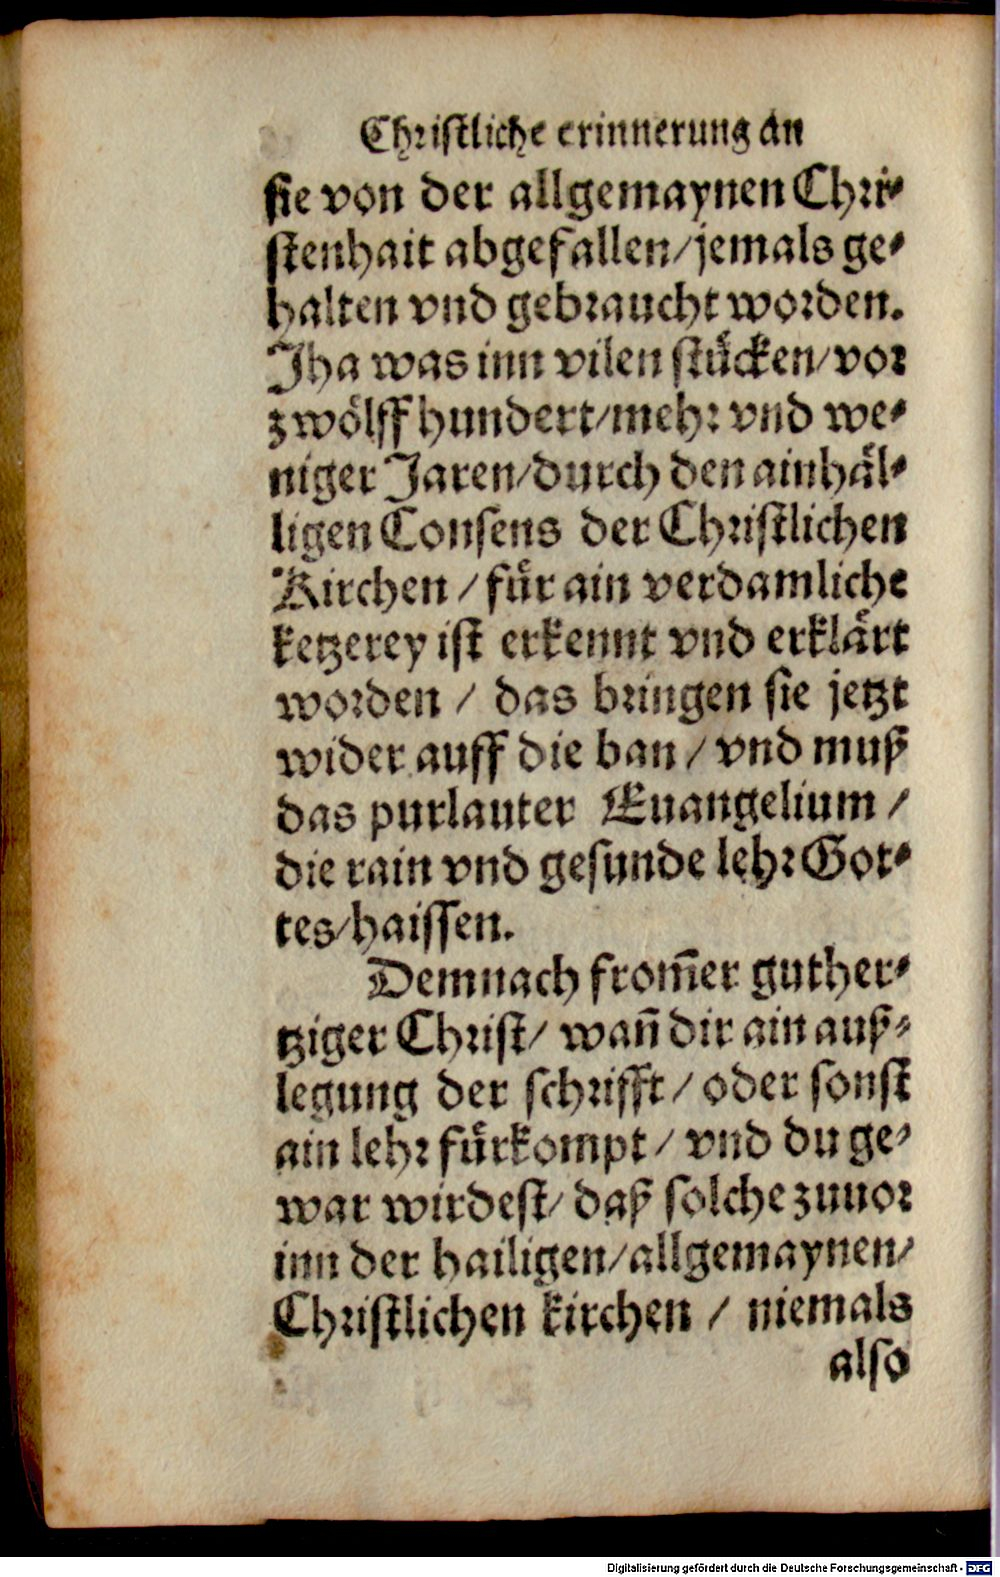 Christliche erinnerung an
sie von der allgemaynen Chri-
stenhait abgefallen/jemals ge-
halten vnd gebraucht worden.
Jha was inn vilen stücken/vor
zwölff hundert/mehr vnd we-
niger Jaren/durch den ainhäl-
ligen Consens der Christlichen
Kirchen / für ain verdamliche
ketzerey ist erkennt vnd erklärt
worden / das bringen sie jetzt
wider auff die ban / vnd muß
das purlauter Euangelium /
die rain vnd gesunde lehr Got-
tes/haissen.
Demnach from̃er guther-
tziger Christ/ wañ dir ain auß-
legung der schrifft / oder sonst
ain lehr fürkompt / vnd du ge-
war wirdest/ daß solche zuuor
inn der hailigen/allgemaynen/
Christlichen kirchen / niemals
also
Digitalisierung gefördert durch die Deutsche Forschungsgemeinschaft - DFG